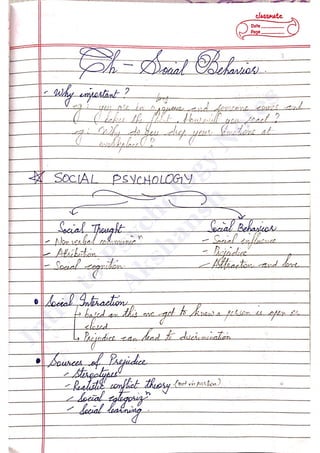 classmate
Date
Page
Ch - Social Behavior
- Why important?
eg: you are in and someone comes and
takes the seat. How will you react?
eg: Why do you drop your emotions at
workplace?
SOCIAL PSYCHOLOGY
Social Thought
Social Behavior
- Nonverbal communicⁿ
- Social influence
- Attribution
- Prejudice
- Social cognition
- Attraction and love
• Social Interaction
↳ based on this we get to know a person is open or
closed
↳ Prejudice can lead to discrimination
• Sources of Prejudice
- Stereotypes
- Realistic conflict theory (not in portion)
- Social categorizⁿ
- Social learning